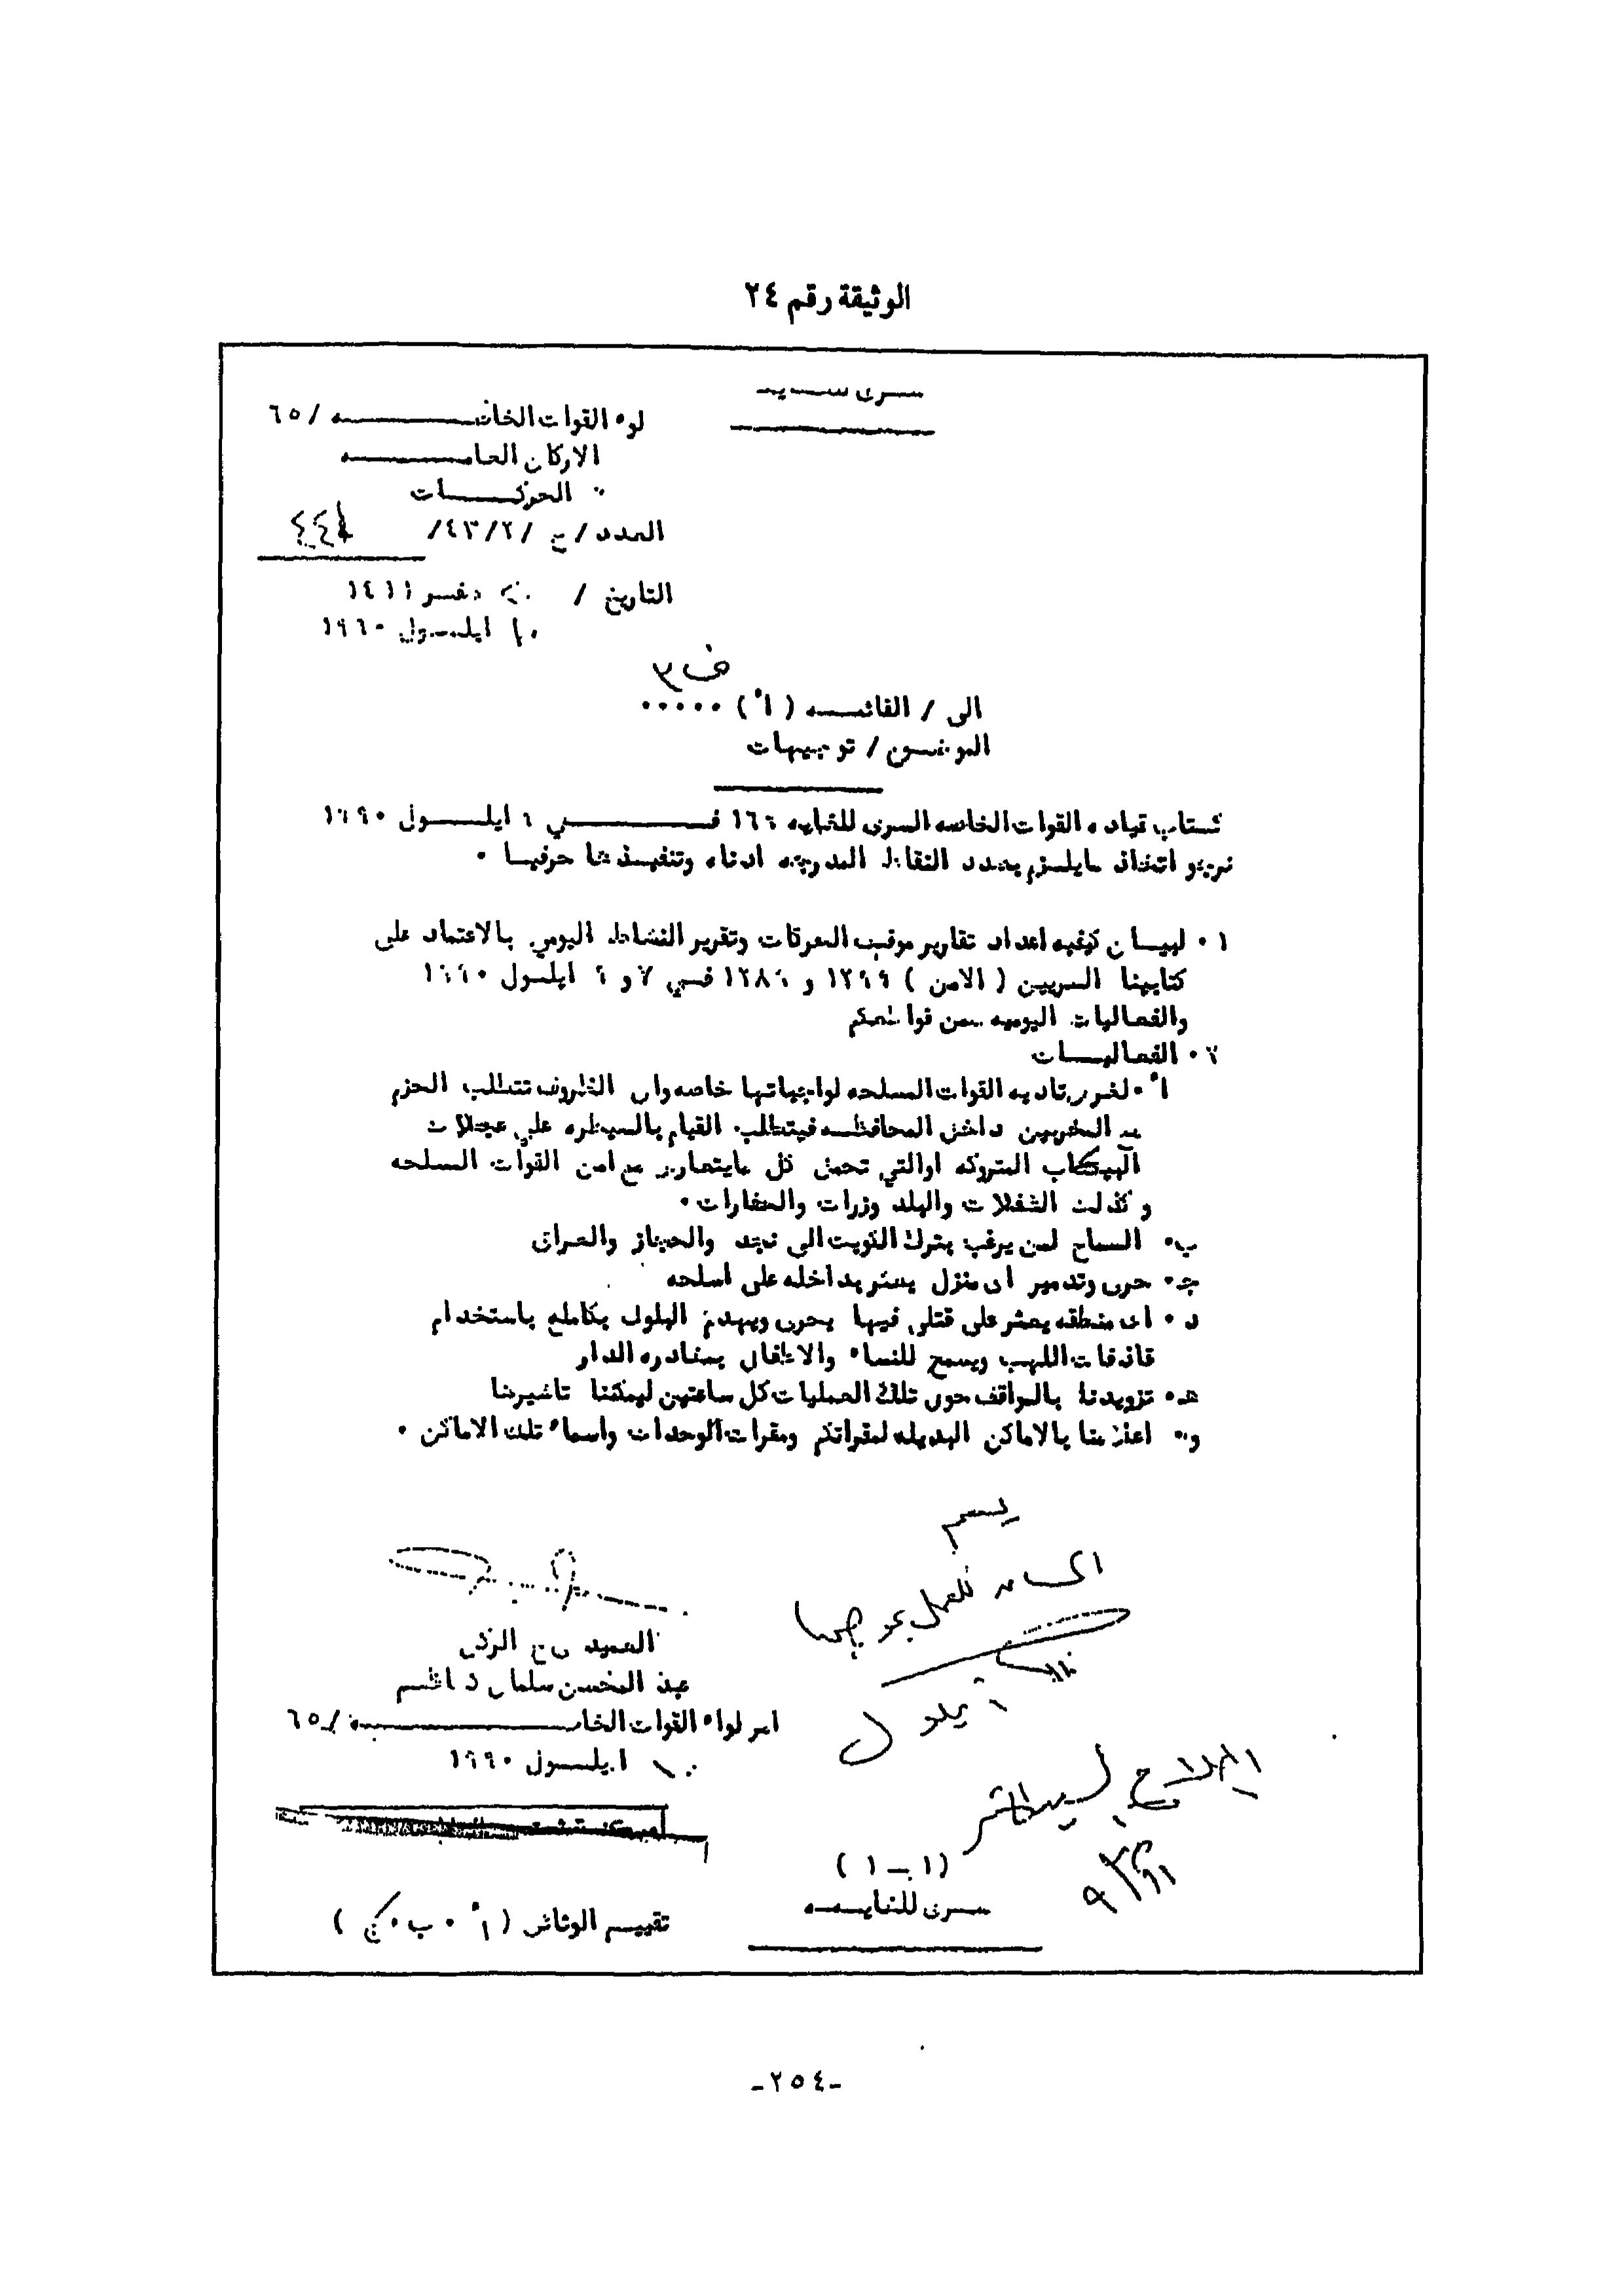 الوثيقة رقم ٢٤
سرى
لواء القوات الخاصـــه /٦٥
الاركان العامـــه
الحركـــات
العدد / ح /٤٣/٢/
التاريخ / صفر ١٤١١
١٠ ايلـــول ١٩٩٠
ف ٣
الى / القائمـــه ( أ ) ٠٠٠٠٠
الموضـــوع / توجيهات
كتاب قياده القوات الخاصه السرى للغايه ١٦٦ فـــي ٩ ايلـــول ١٩٩٠
نرجو اتخاذ مايلـــزم بصدد النقاط المدرجه ادناه وتنفيـــذها حرفيـــا ٠
١ ٠ لبيـــان كيفيه اعداد تقارير موقف الحركات وتقرير النشاط اليومي بالاعتماد على
كتابينا السريين ( الامن ) ١٢٩٩ و ١٢٨٩ فـــي ٧ و ٩ ايلـــول ١٩٩٠
والفعاليات اليوميه ضمن قواطعكم
٢ ٠ الفعاليـــات
أ ٠ لغرض تاديه القوات المسلحه لواجباتها خاصه وان الظروف تتطلب الحزم
ضد المخربين داخل المحافظـــه فيتطلب القيام بالسيطره على عجلات
البيكاب المتروكه اوالتي تحمل كل مايتعارض مع امن القوات المسلحه
وكذلك الشفلات والبلدوزرات والحفارات ٠
ب ٠ السماح لمن يرغب بترك الكويت الى نجد والحجاز والعراق
ج ٠ حرق وتدمير اى منزل يعثر بداخله على اسلحه
د ٠ اى منطقه يعثر على قتلى فيها يحرق ويهدم البلوك بكامله باستخدام
قاذفات اللهب ويسمح للنساء والاطفال بمغادره الدار
هـ ٠ تزويدنا بالمواقف حول تلك العمليات كل ساعتين ليمكننا تاشيرها
و ٠ اعلامنا بالاماكن البديله لمقراتكم ومقرات الوحدات واسماء تلك الاماكن ٠
العميد ق خ الركن
عبد المحسن سلمان كاظـــم
امر لواء القوات الخاصـــه /٦٥
١٠ ايلـــول ١٩٩٠
( ١ – ١ )
ســـرى للغايـــه
تقييم الوثائق ( أ ٠ ب ٠ ج )
-٢٥٤-